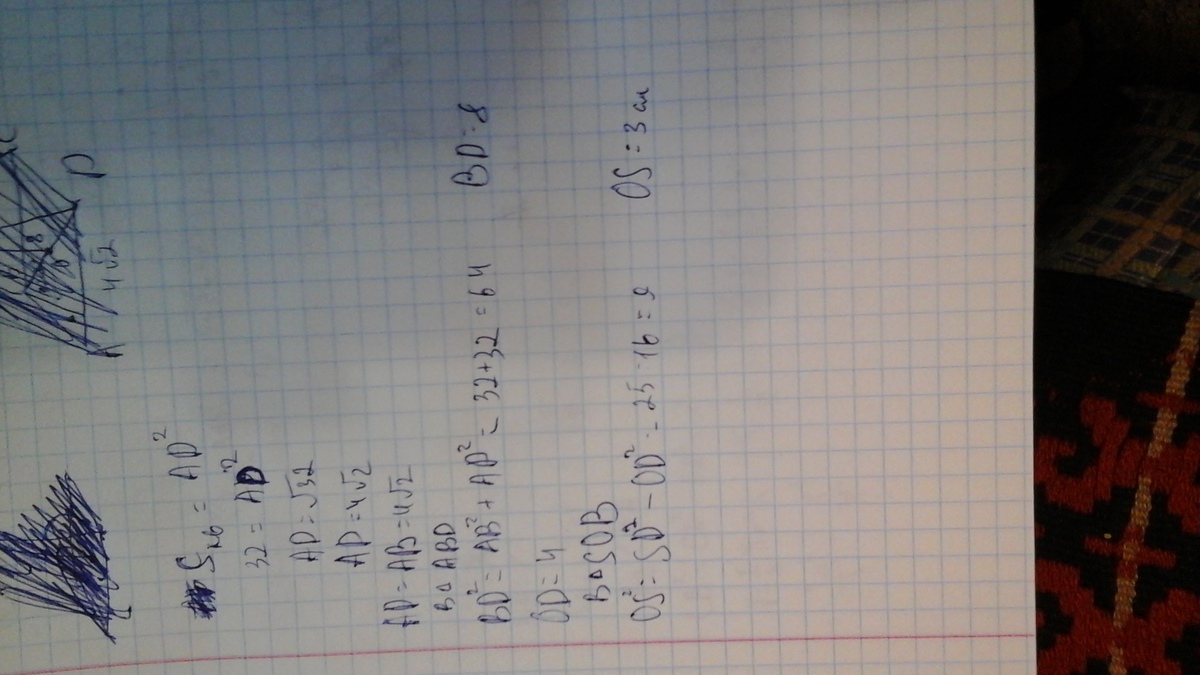 C
8
D
4√2
A
Sкв = AD²
32 = AD²
AD = √32
AD = 4√2
AD = AB = 4√2
В △ ABD
BD² = AB² + AD² = 32+32 = 64 BD = 8
OD = 4
В △ SOB
OS² = SD² - OD² - 25 - 16 = 9 OS = 3 см